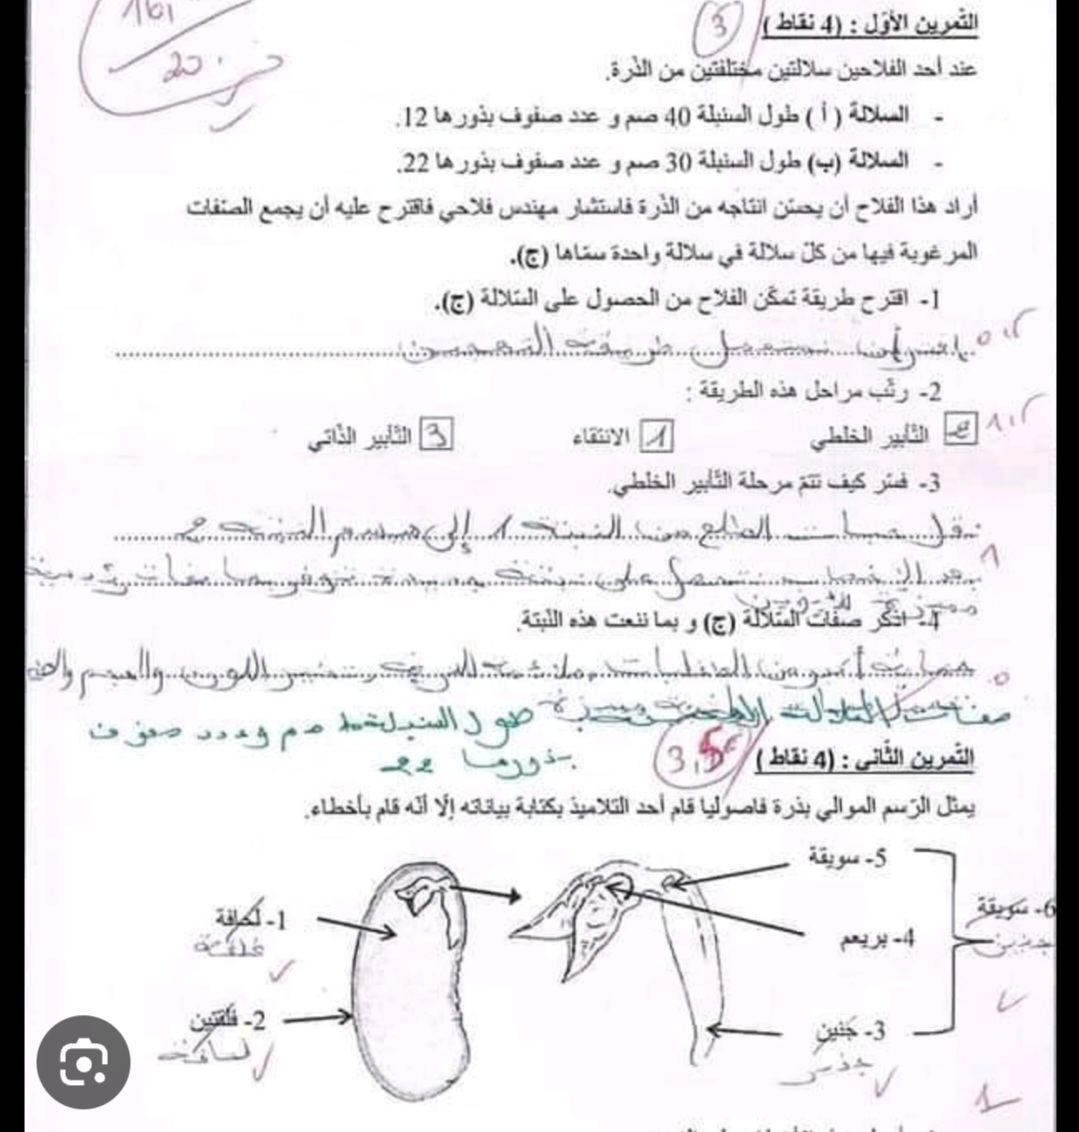 16,
20
التّمرين الأوّل : (4 نقاط)
3
عند أحد الفلاحين سلالتين مختلفتين من الذّرة.
- السلالة ( أ ) طول السنبلة 40 صم و عدد صفوف بذورها 12.
- السلالة (ب) طول السنبلة 30 صم و عدد صفوف بذورها 22.
أراد هذا الفلاح أن يحسّن انتاجه من الذّرة فاستشار مهندس فلاحي فاقترح عليه أن يجمع الصّفات
المرغوبة فيها من كلّ سلالة في سلالة واحدة سمّاها (ج).
1- اقترح طريقة تمكّن الفلاح من الحصول على السّلالة (ج).
نستعمل طريقة التهجين
2- رتّب مراحل هذه الطريقة :
2 التّأبير الخلطي 1 الانتقاء 3 التّأبير الذّاتي
3- فسّر كيف تتمّ مرحلة التّأبير الخلطي.
نقل حبات الطلع من النبتة 1 إلى ميسم النبتة 2
بعد الإخصاب نتحصل على نبتة جديدة تتوفر بها صفات
4- اذكر صفات السّلالة (ج) و بما ننعت هذه النّبتة.
اللون والحجم
طول السنبلة صم وعدد صفوف
بذورها 22
التّمرين الثّاني : (4 نقاط)
3,5
يمثل الرّسم الموالي بذرة فاصوليا قام أحد التلاميذ بكتابة بياناته إلّا أنّه قام بأخطاء.
5- سويقة
6- سويقة
جنين
1- لحافة
فلقة
4- بريعم
2- فلقتين
لحافة
3- جنين
جذير
1